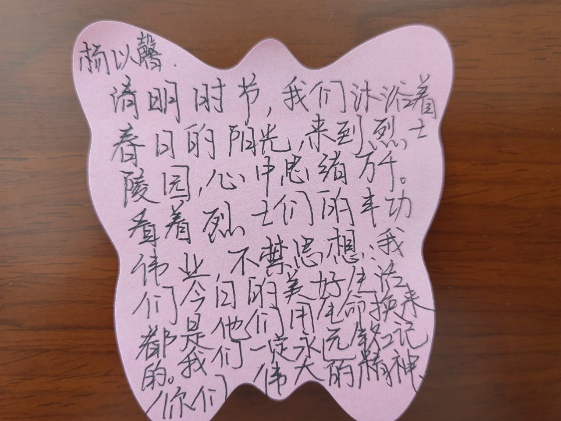 杨以馨
清明时节,我们沐浴着
春日的阳光,来到烈士
陵园,心中思绪万千。
看着烈士们的丰功
伟业,不禁思想:我
们今日的美好生活
都是他们用生命换来
的。我们一定永远铭记
你们伟大的精神。